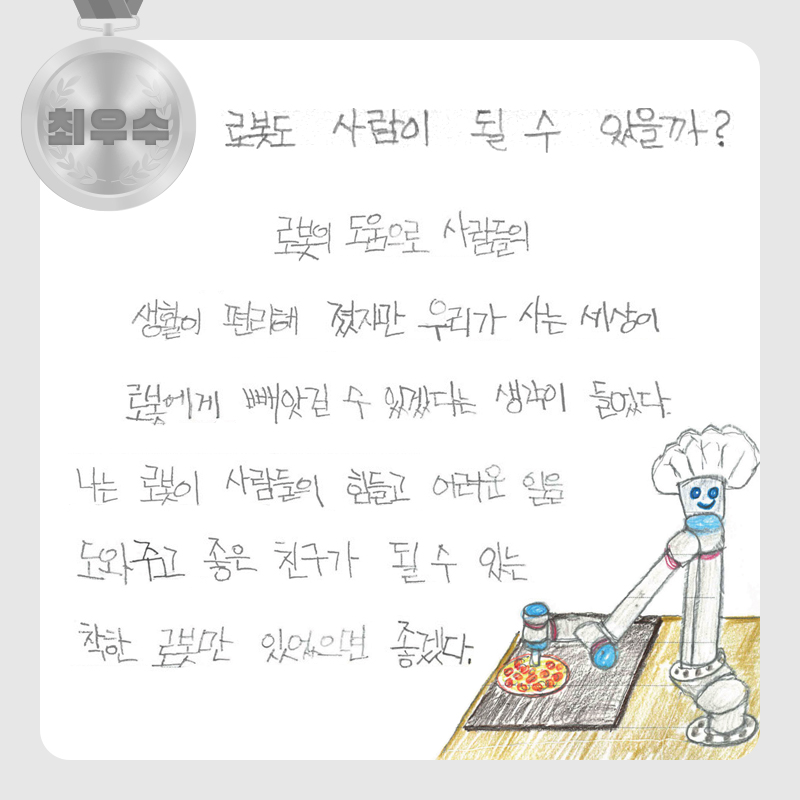 최우수
로봇도 사람이 될 수 있을까?
로봇의 도움으로 사람들의
생활이 편리해 졌지만 우리가 사는 세상이
로봇에게 빼앗길 수 있겠다는 생각이 들었다.
나는 로봇이 사람들의 힘들고 어려운 일을
도와주고 좋은 친구가 될 수 있는
착한 로봇만 있었으면 좋겠다.